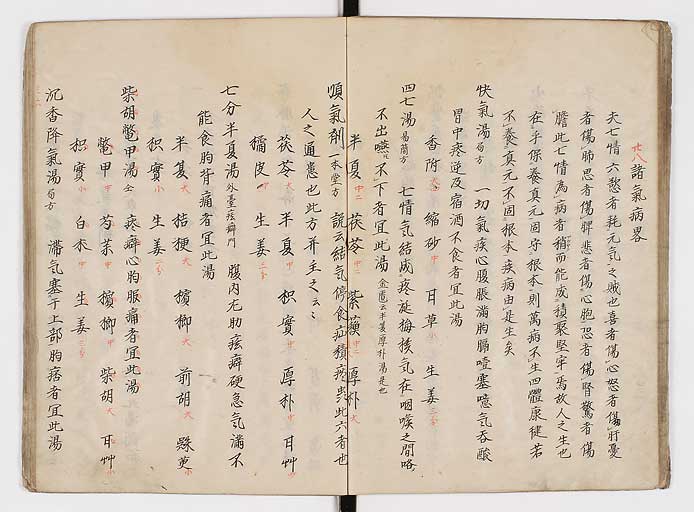 廿八諸氣病畧
夫七情六慾者耗元気之賊也喜者傷心怒者傷肝憂
者傷肺思者傷脾悲者傷心胞恐者傷腎驚者傷
膽此七情為病者稍而能成積聚堅牢焉故人之生也
在乎保養真元固守根本則萬病不生四體康健若
不養真元不固根本疾病由是生矣
快氣湯局方 一切気疾心腹脹満胸膈噎塞噫気呑酸
胃中痰逆及宿酒不食者宜此湯
香附大 縮砂中 甘草小 生姜三分
四七湯易簡方 七情気結成痰涎梅核気在咽喉之間咯
不出嚥不下者宜此湯金匱云半夏厚朴湯是也
半夏中二 茯苓中 紫蘓中 厚朴大
順気剤一本堂方 説云結気停食疝積痰此六者也
人之通患也此方并主之云々
茯苓大 半夏 枳實中 厚朴中 甘艸小
橘皮中 生姜三分
七分半夏湯外臺痃癖門 腹内左肋痃癖硬急気満不
能食胸背痛者宜此湯
半夏大 桔梗大 檳榔大 前胡大 小
枳實小 生姜三分
柴胡鼈甲湯仝 痃癖心胸脹痛者宜此湯
鼈甲中 芍薬中 檳榔中 柴胡大 甘艸小
枳實小 白朮中 生姜三分
沉香降氣湯局方 滞気塞于上部胸痞者宜此湯